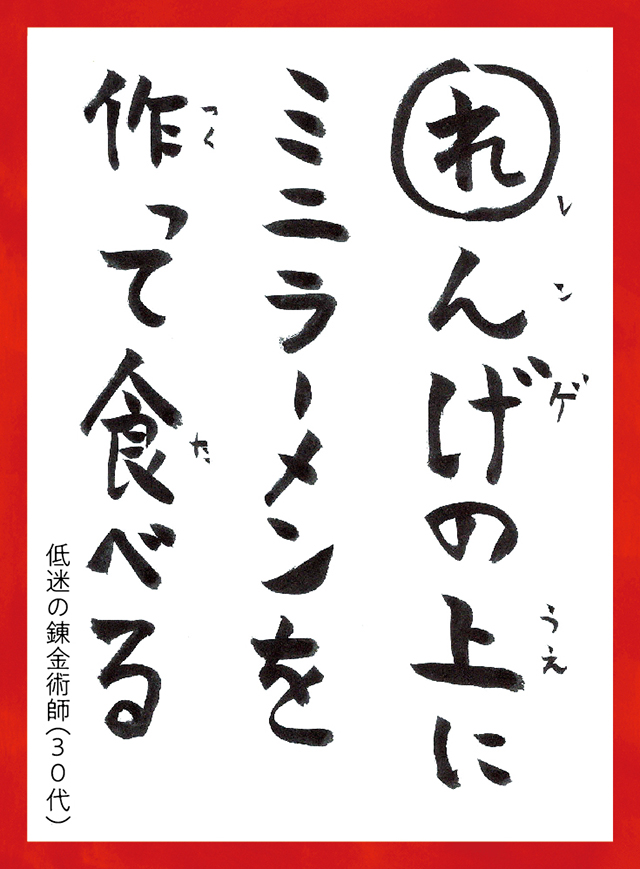 れんげの上に
ミニラーメンを
作って食べる
レンゲ
うえ
つく
た
低迷の錬金術師(30代)